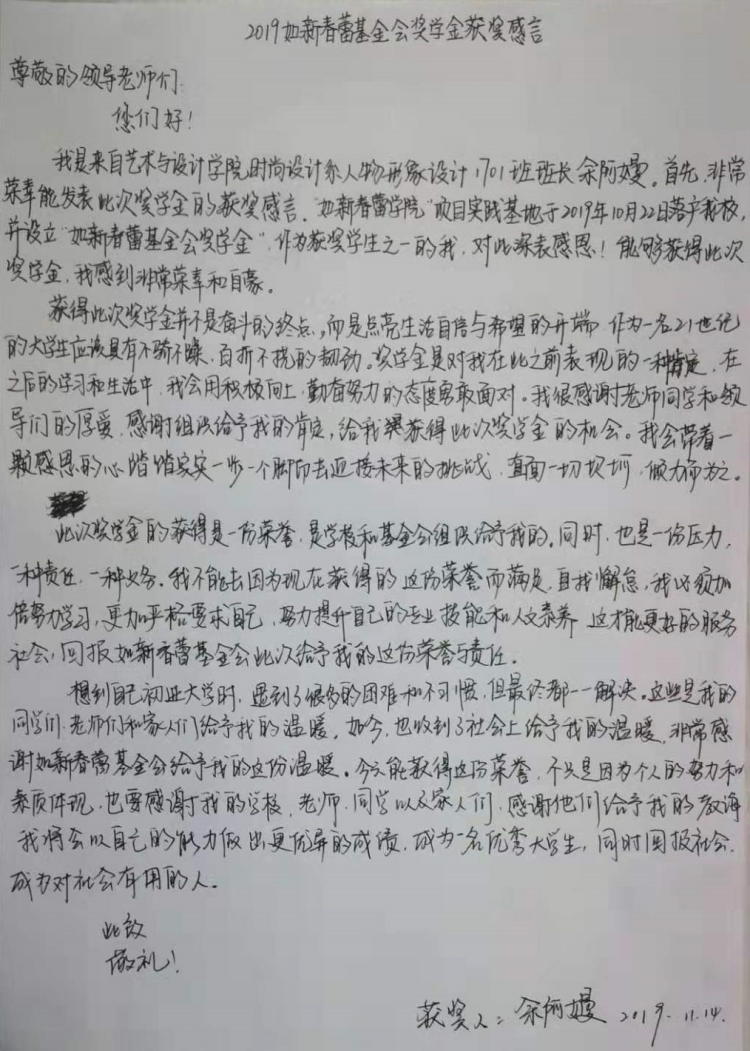 2019如新春蕾基金会奖学金获奖感言
尊敬的领导老师们:
您们好!
我是来自艺术与设计学院时尚设计系人物形象设计1701班班长余阿嫚。首先,非常
荣幸能发表此次奖学金的获奖感言。"如新春蕾学院"项目实践基地于2019年10月22日落户我校,
并设立"如新春蕾基金会奖学金",作为获奖学生之一的我,对此深表感恩!能够获得此次
奖学金,我感到非常荣幸和自豪。
获得此次奖学金并不是奋斗的终点,而是点亮生活自信与希望的开端,作为一名21世纪
的大学生应该具有不骄不躁,百折不挠的韧劲。奖学金是对我在此之前表现的一种肯定,在
之后的学习和生活中,我会用积极向上,勤奋努力的态度勇敢面对。我很感谢老师同学和领
导们的厚爱,感谢组织给予我的肯定,给我获得此次奖学金的机会。我会带着一
颗感恩的心踏踏实实一步一个脚印去迎接未来的挑战,直面一切坎坷,倾力而为之。
此次奖学金的获得是一份荣誉,是学校和基金会组织给予我的。同时,也是一份压力,
一种责任,一种义务。我不能去因为现在获得的这份荣誉而满足,自我懈怠,我必须加
倍努力学习,更加严格要求自己,努力提升自己的专业技能和人文素养,这才能更好的服务
社会,回报如新春蕾基金会此次给予我的这份荣誉与责任。
想到自己初进大学时,遇到了很多的困难和不习惯,但最终都一一解决。这些是我的
同学们、老师们和家人们给予我的温暖。如今,也收到了社会上给予我的温暖,非常感
谢如新春蕾基金会给予我的这份温暖。今天能获得这份荣誉,不只是因为个人的努力和
素质体现,也要感谢我的学校、老师、同学以及家人们,感谢他们给予我的教诲
我将会以自己的能力做出更优异的成绩,成为一名优秀大学生,同时回报社会,
成为对社会有用的人。
此致
敬礼!
获奖人:余阿嫚 2019.11.14.